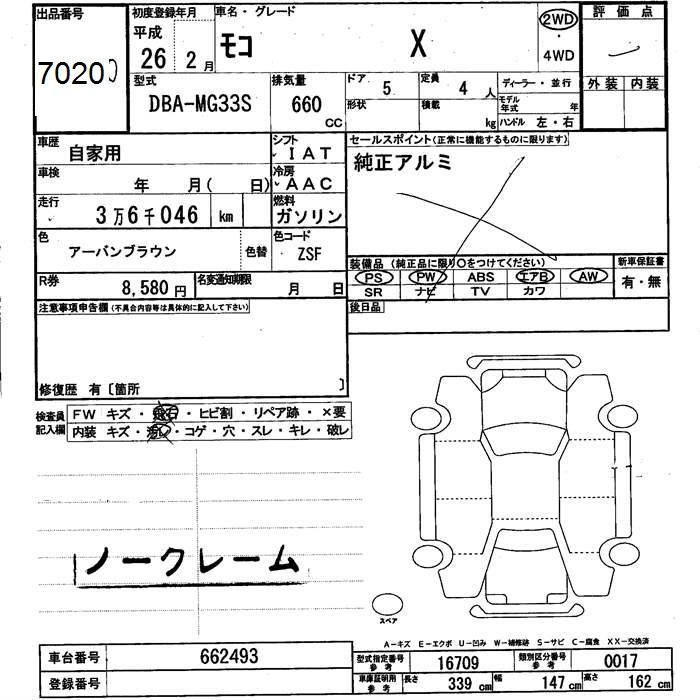 出品番号 初度登録年月 車名・グレード 2WD 評価点
平成 モコ X ・
7020 26 2月 4WD
型式 排気量 ドア 5 定員 4人 ディーラー・並行 外装 内装
DBA-MG33S 660 CC 形状 積載 kg モデル年式 年
ハンドル 左・右
車歴 自家用 シフト IAT セールスポイント(正常に機能するものに限ります)
車検 年 月( 日) 冷房 AAC 純正アルミ
走行 3万6千046 km 燃料 ガソリン
色 アーバンブラウン 色替 色コード ZSF
装備品 (純正品に限り○をつけてください) 新車保証書
R券 8,580円 名変通知期限 月 日 PS PW ABS エアB AW 有・無
SR ナビ TV カワ
注意事項申告欄(不具合内容等は具体的に記入して下さい) 後日品
修復歴 有〔箇所 〕
検査員 FW キズ・飛石・ヒビ割・リペア跡・×要
記入欄 内装 キズ・汚れ・コゲ・穴・スレ・キレ・破レ
ノークレーム
スペア
A-キズ E-エクボ U-凹み W-補修跡 S-サビ C-腐食 XX-交換済
車台番号 662493 型式指定番号 参考 16709 類別区分番号 参考 0017
登録番号 車庫証明用 参考 長さ 339cm 幅 147cm 高さ 162cm